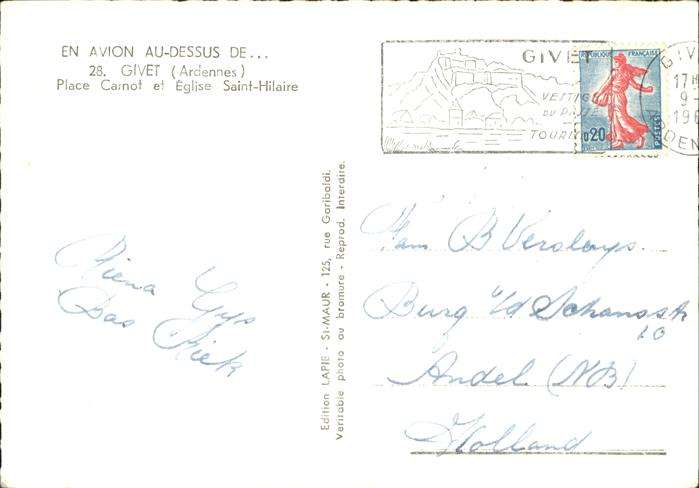 EN AVION AU-DESSUS DE...
28. GIVET (Ardennes)
Place Carnot et Église Saint-Hilaire
GIVET
VESTIG
DU PASSÉ
TOURI
REPUBLIQUE FRANÇAISE
0,20
POSTES
GIV
17H
9-
196
ARDEN
Edition LAPIE - St-MAUR - 125, rue Garibaldi.
Veritable photo au bromure - Reprod. Interdite.
Riena Gijs
Bas Riek
Fam B Versluys.
Burg v/d Schansstr
10
Andel (NB)
Holland